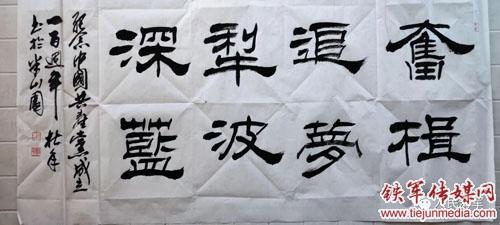 奮楫
追夢
犁波
深藍
中國共產黨成立
一百週年
书於半山園
铁军传媒网
www.tiejunmedia.com